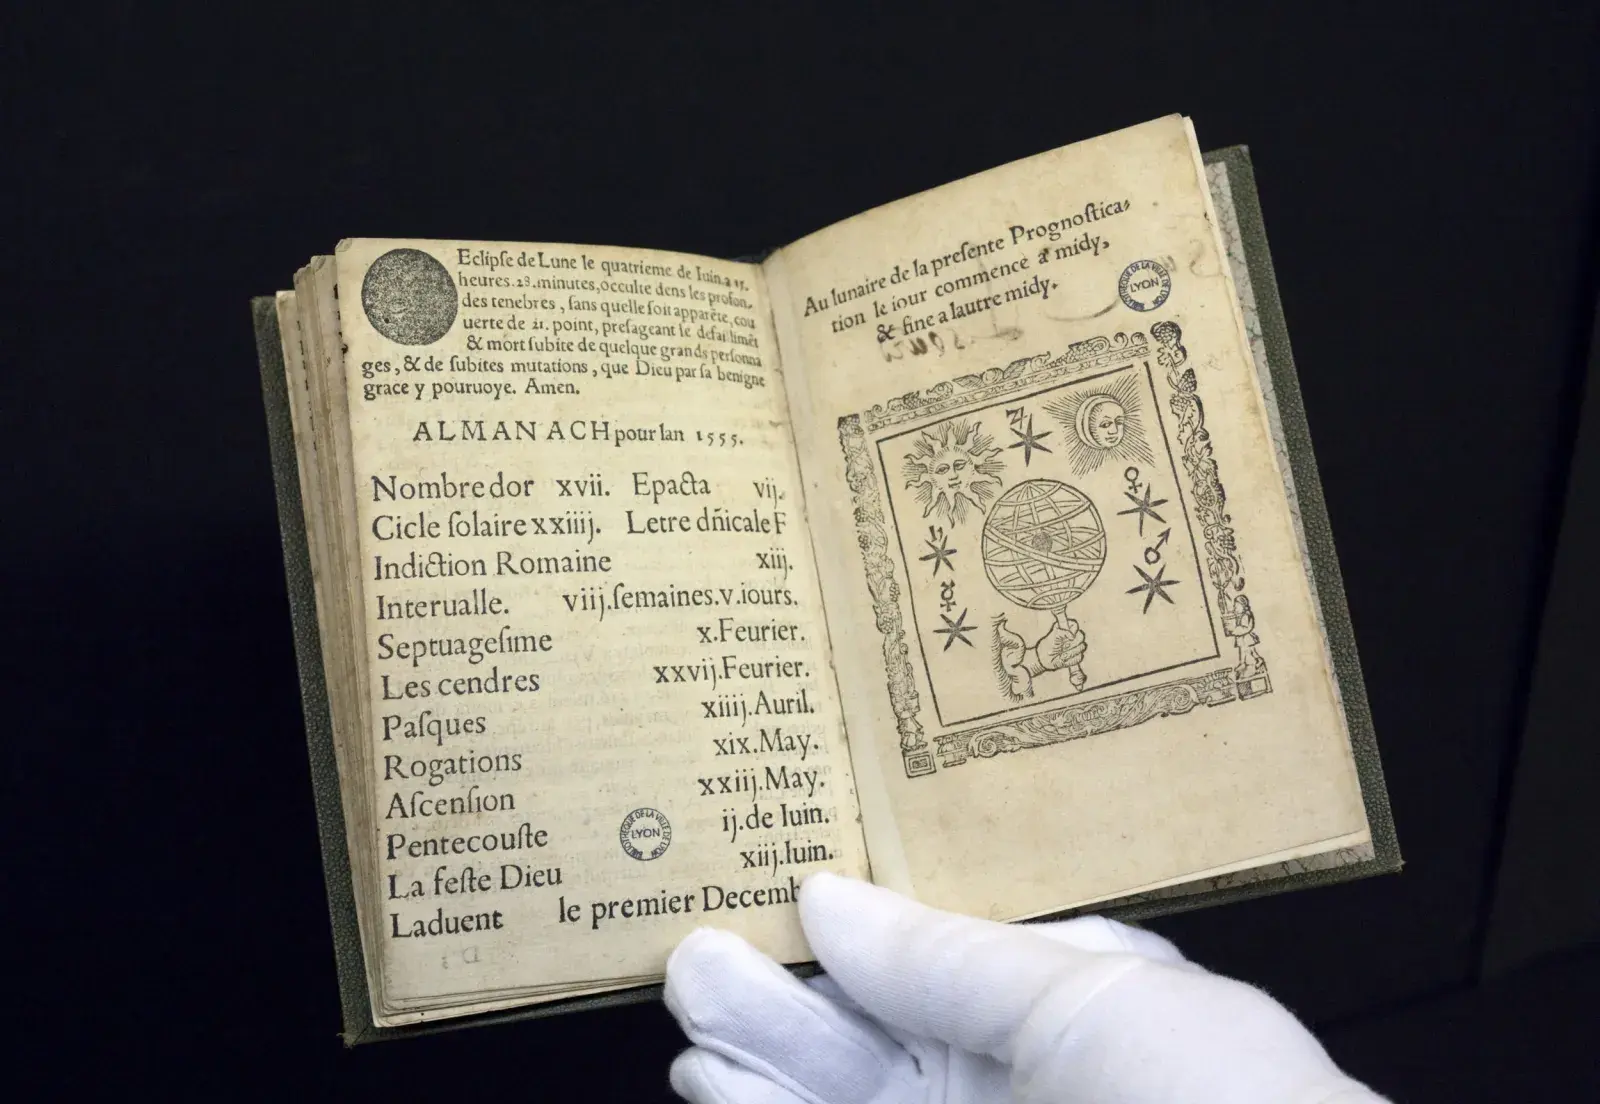 Eclipſe de Lune le quatrieme de Iuin.a 15.
heures.28.minutes,occulte dens les profon-
des tenebres, ſans quelle ſoit apparẽte, cou
uerte de 21. point, preſageant le defaillimẽt
& mort ſubite de quelque grands perſonna
ges, & de ſubites mutations, que Dieu par ſa benigne
grace y pouruoye. Amen.
ALMANACH pour lan 1555.
Nombre dor xvii. Epacta vij.
Cicle ſolaire xxiiij. Letre dñicale F
Indiction Romaine xiij.
Interualle. viij.ſemaines.v.iours.
Septuageſime x.Feurier.
Les cendres xxvij.Feurier.
Paſques xiiij.Auril.
Rogations xix.May.
Aſcenſion xxiij.May.
Pentecouſte ij.de Iuin.
La feſte Dieu xiij.Iuin.
Laduent le premier Decemb
BIBLIOTHEQUE DE LA VILLE DE LYON
LYON
Au lunaire de la preſente Prognoſtica-
tion le iour commence a midy,
& fine a lautre midy.
BIBLIOTHEQUE DE LA VILLE DE LYON
LYON
♃
♄
☿
♀
♂